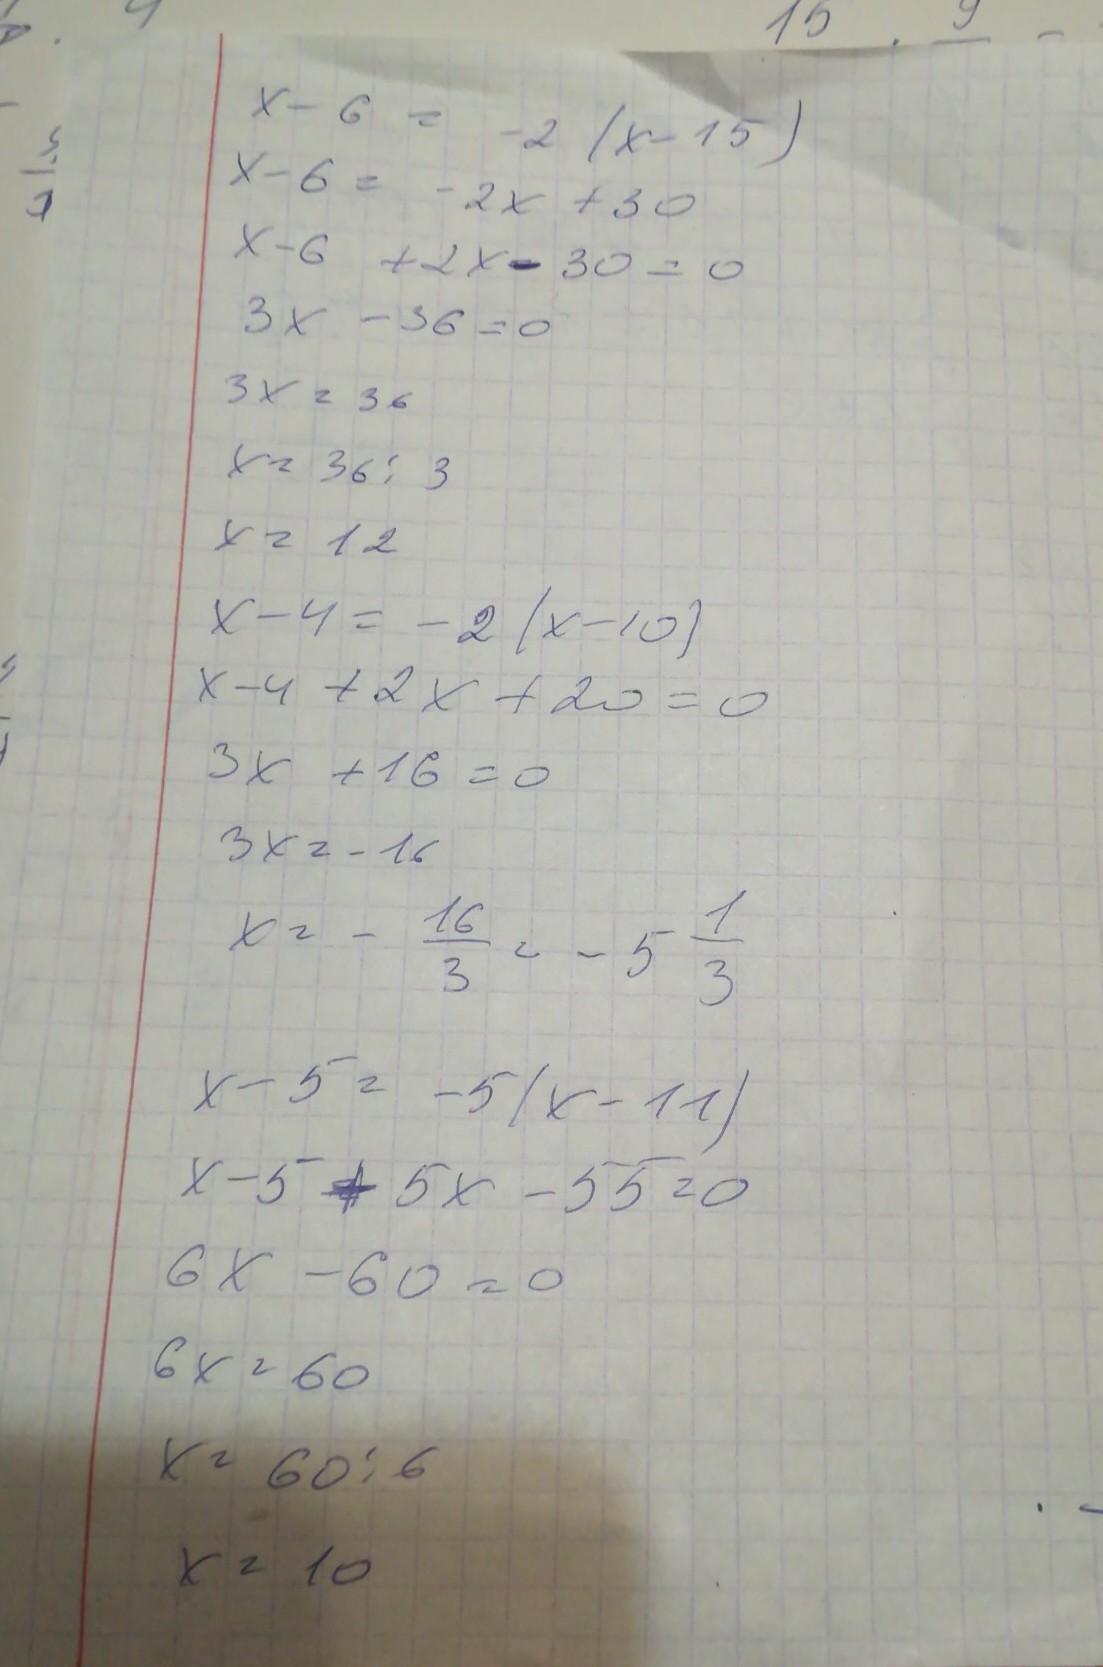 15 . 9 -
x - 6 = -2 (x - 15)
x - 6 = -2x + 30
x - 6 + 2x - 30 = 0
3x - 36 = 0
3x = 36
x = 36 : 3
x = 12
x - 4 = -2 (x - 10)
x - 4 + 2x + 20 = 0
3x + 16 = 0
3x = -16
x = - 16/3 = -5 1/3
x - 5 = -5 (x - 11)
x - 5 + 5x - 55 = 0
6x - 60 = 0
6x = 60
x = 60 : 6
x = 10